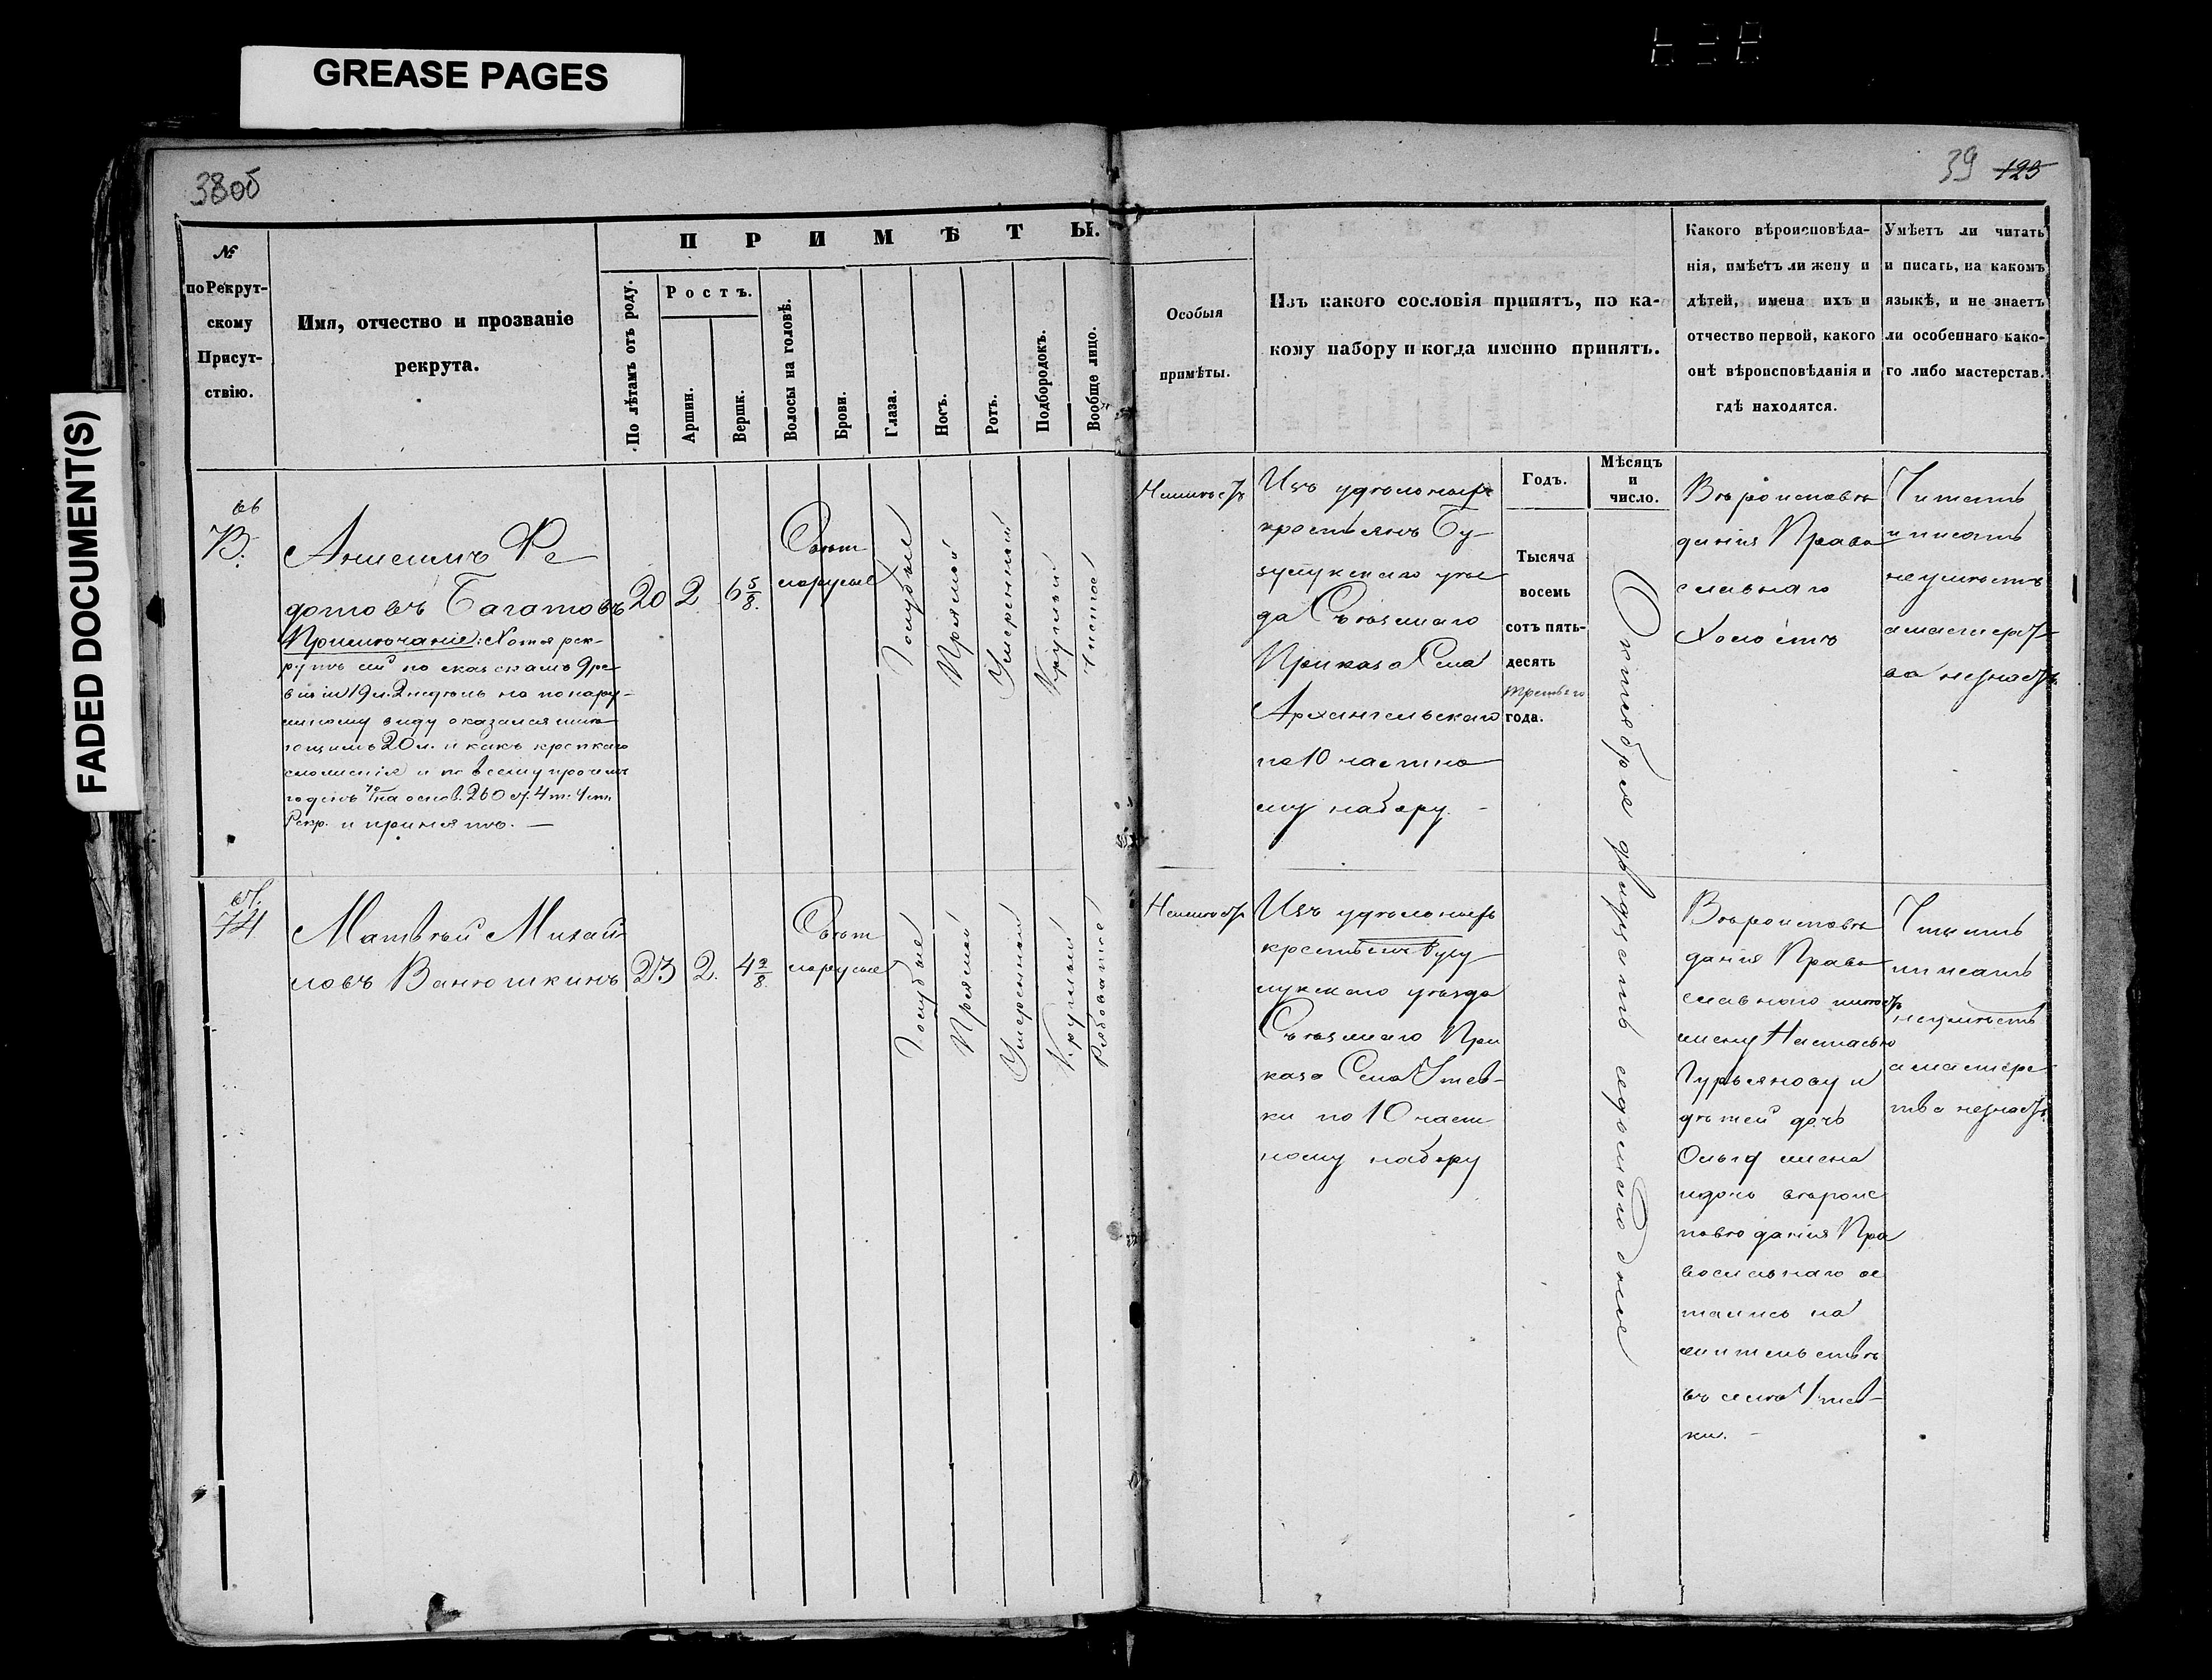 GREASE PAGES
FADED DOCUMENT(S)
38об
39 125
№
по Рекрут-
скому
Присут-
ствію.
Имя, отчество и прозваніе
рекрута.
ПРИМѢТЫ.
По лѣтамъ отъ роду.
Ростъ.
Аршин.
Вершк.
Волосы на головѣ.
Брови.
Глаза.
Носъ.
Ротъ.
Подбородокъ.
Вообще лицо.
Особыя
примѣты.
Изъ какого сословія принятъ, по ка-
кому набору и когда именно принятъ.
Годъ.
Мѣсяцъ
и
число.
Какого вѣроисповѣда-
нія, имѣетъ ли жену и
дѣтей, имена ихъ и
отчество первой, какого
онѣ вѣроисповѣданія и
гдѣ находятся.
Умѣетъ ли читать
и писать, на какомъ
языкѣ, и не знаетъ
ли особеннаго како-
го либо мастерства.
Анисимъ Фе
дотовъ Багатовъ
Примѣчаніе: Хотя рек-
рутъ сей по сказкамъ
19 л. 2 недѣль но по нару-
жному виду оказался имѣ
ющимъ 20 л. и какъ крепкаго
сложенія и по всему прочему
годенъ то на основ. 260 ст. 4 т. Уст.
Рекр. и принятъ. —
20
2
6 5/8.
Свѣт
лорусые
Голубые
Прямой
Умеренный
Круглый
Чистое
Неимѣетъ
Изъ удѣльныхъ
крестьянъ Бу-
зулукскаго уѣз
да Съѣзжаго
Приказа Села
Архангельскаго
по 10 частно
му набору. -
Тысяча
восемь
сотъ пять-
десять
третьяго
года.
Октября двадцать седьмаго дня
Вѣроисповѣ
данія Право
славнаго
Холостъ
Читать
и писать
неумѣетъ
а мастерст-
ва незнаетъ.
74
Матвѣй Михай
ловъ Ванюшкинъ
23
2.
4 2/8.
Свѣт
лорусые
Голубые
Прямой
Умеренный
Круглый
Рябоватое
Неимѣетъ
Изъ удѣльныхъ
крестьянъ Бузу
лукскаго уѣзда
Съѣзжаго При
каза Села Утев-
ки по 10 част
ному набору
Вѣроисповѣ
данія Право
славнаго имѣетъ
жену Настасью
Гурьянову и
дѣтей дочь
Ольгу жена
и дочь вѣроис
повѣданія Пра
вославнаго ос
тались на
жительствѣ
въ селѣ Утев-
ки. -
Читать
и писать
неумѣетъ
а мастерс
тва незнаетъ.